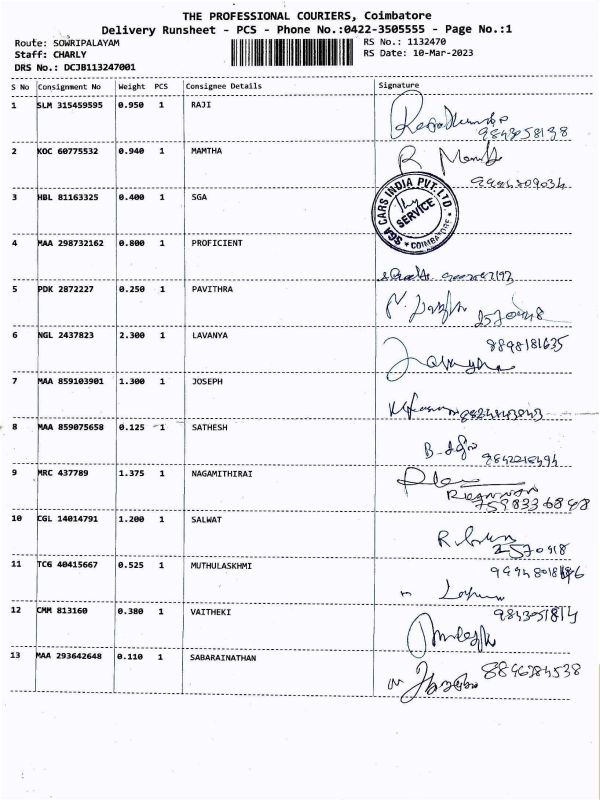 THE PROFESSIONAL COURIERS, Coimbatore
Delivery Runsheet - PCS - Phone No.:0422-3505555 - Page No.:1
Route: SOWRIPALAYAM RS No.: 1132470
Staff: CHARLY RS Date: 10-Mar-2023
DRS No.: DCJB113247001
S No Consignment No Weight PCS Consignee Details Signature
1 SLM 315459595 0.950 1 RAJI
2 KOC 60775532 0.940 1 MAMTHA
3 HBL 81163325 0.400 1 SGA
SGA CARS INDIA PVT. LTD. * COIMBATORE *
SERVICE
4 MAA 298732162 0.800 1 PROFICIENT
5 PDK 2872227 0.250 1 PAVITHRA
6 NGL 2437823 2.300 1 LAVANYA
8898181635
7 MAA 859103901 1.300 1 JOSEPH
8 MAA 859075658 0.125 1 SATHESH
9 MRC 437789 1.375 1 NAGAMITHIRAI
10 CGL 14014791 1.200 1 SALWAT
2570918
11 TCG 40415667 0.525 1 MUTHULASKHMI
12 CMM 813160 0.380 1 VAITHEKI
13 MAA 293642648 0.110 1 SABARAINATHAN